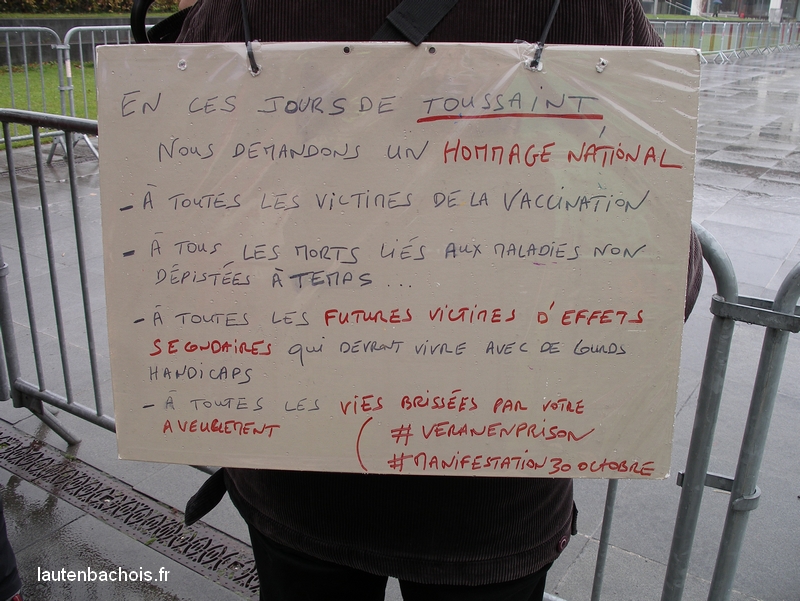 EN CES JOURS DE TOUSSAINT
NOUS DEMANDONS UN HOMMAGE NATIONAL
- À TOUTES LES VICTIMES DE LA VACCINATION
- À TOUS LES MORTS LIÉS AUX MALADIES NON
DÉPISTÉES À TEMPS ...
- À TOUTES LES FUTURES VICTIMES D'EFFETS
SECONDAIRES qui DEVRONT VIVRE AVEC DE LOURDS
HANDICAPS
- À TOUTES LES VIES BRISÉES PAR VOTRE
AVEUGLEMENT ( # VERANENPRISON
# MANIFESTATION 30 OCTOBRE
lautenbachois.fr